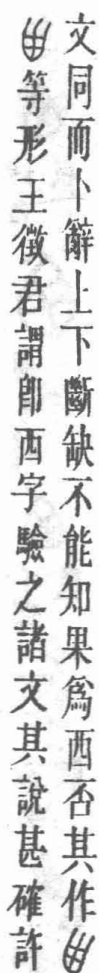 文同而卜辭上下斷缺不能知果爲西否其作
等形王徵君謂卽西字驗之諸文其說甚確許